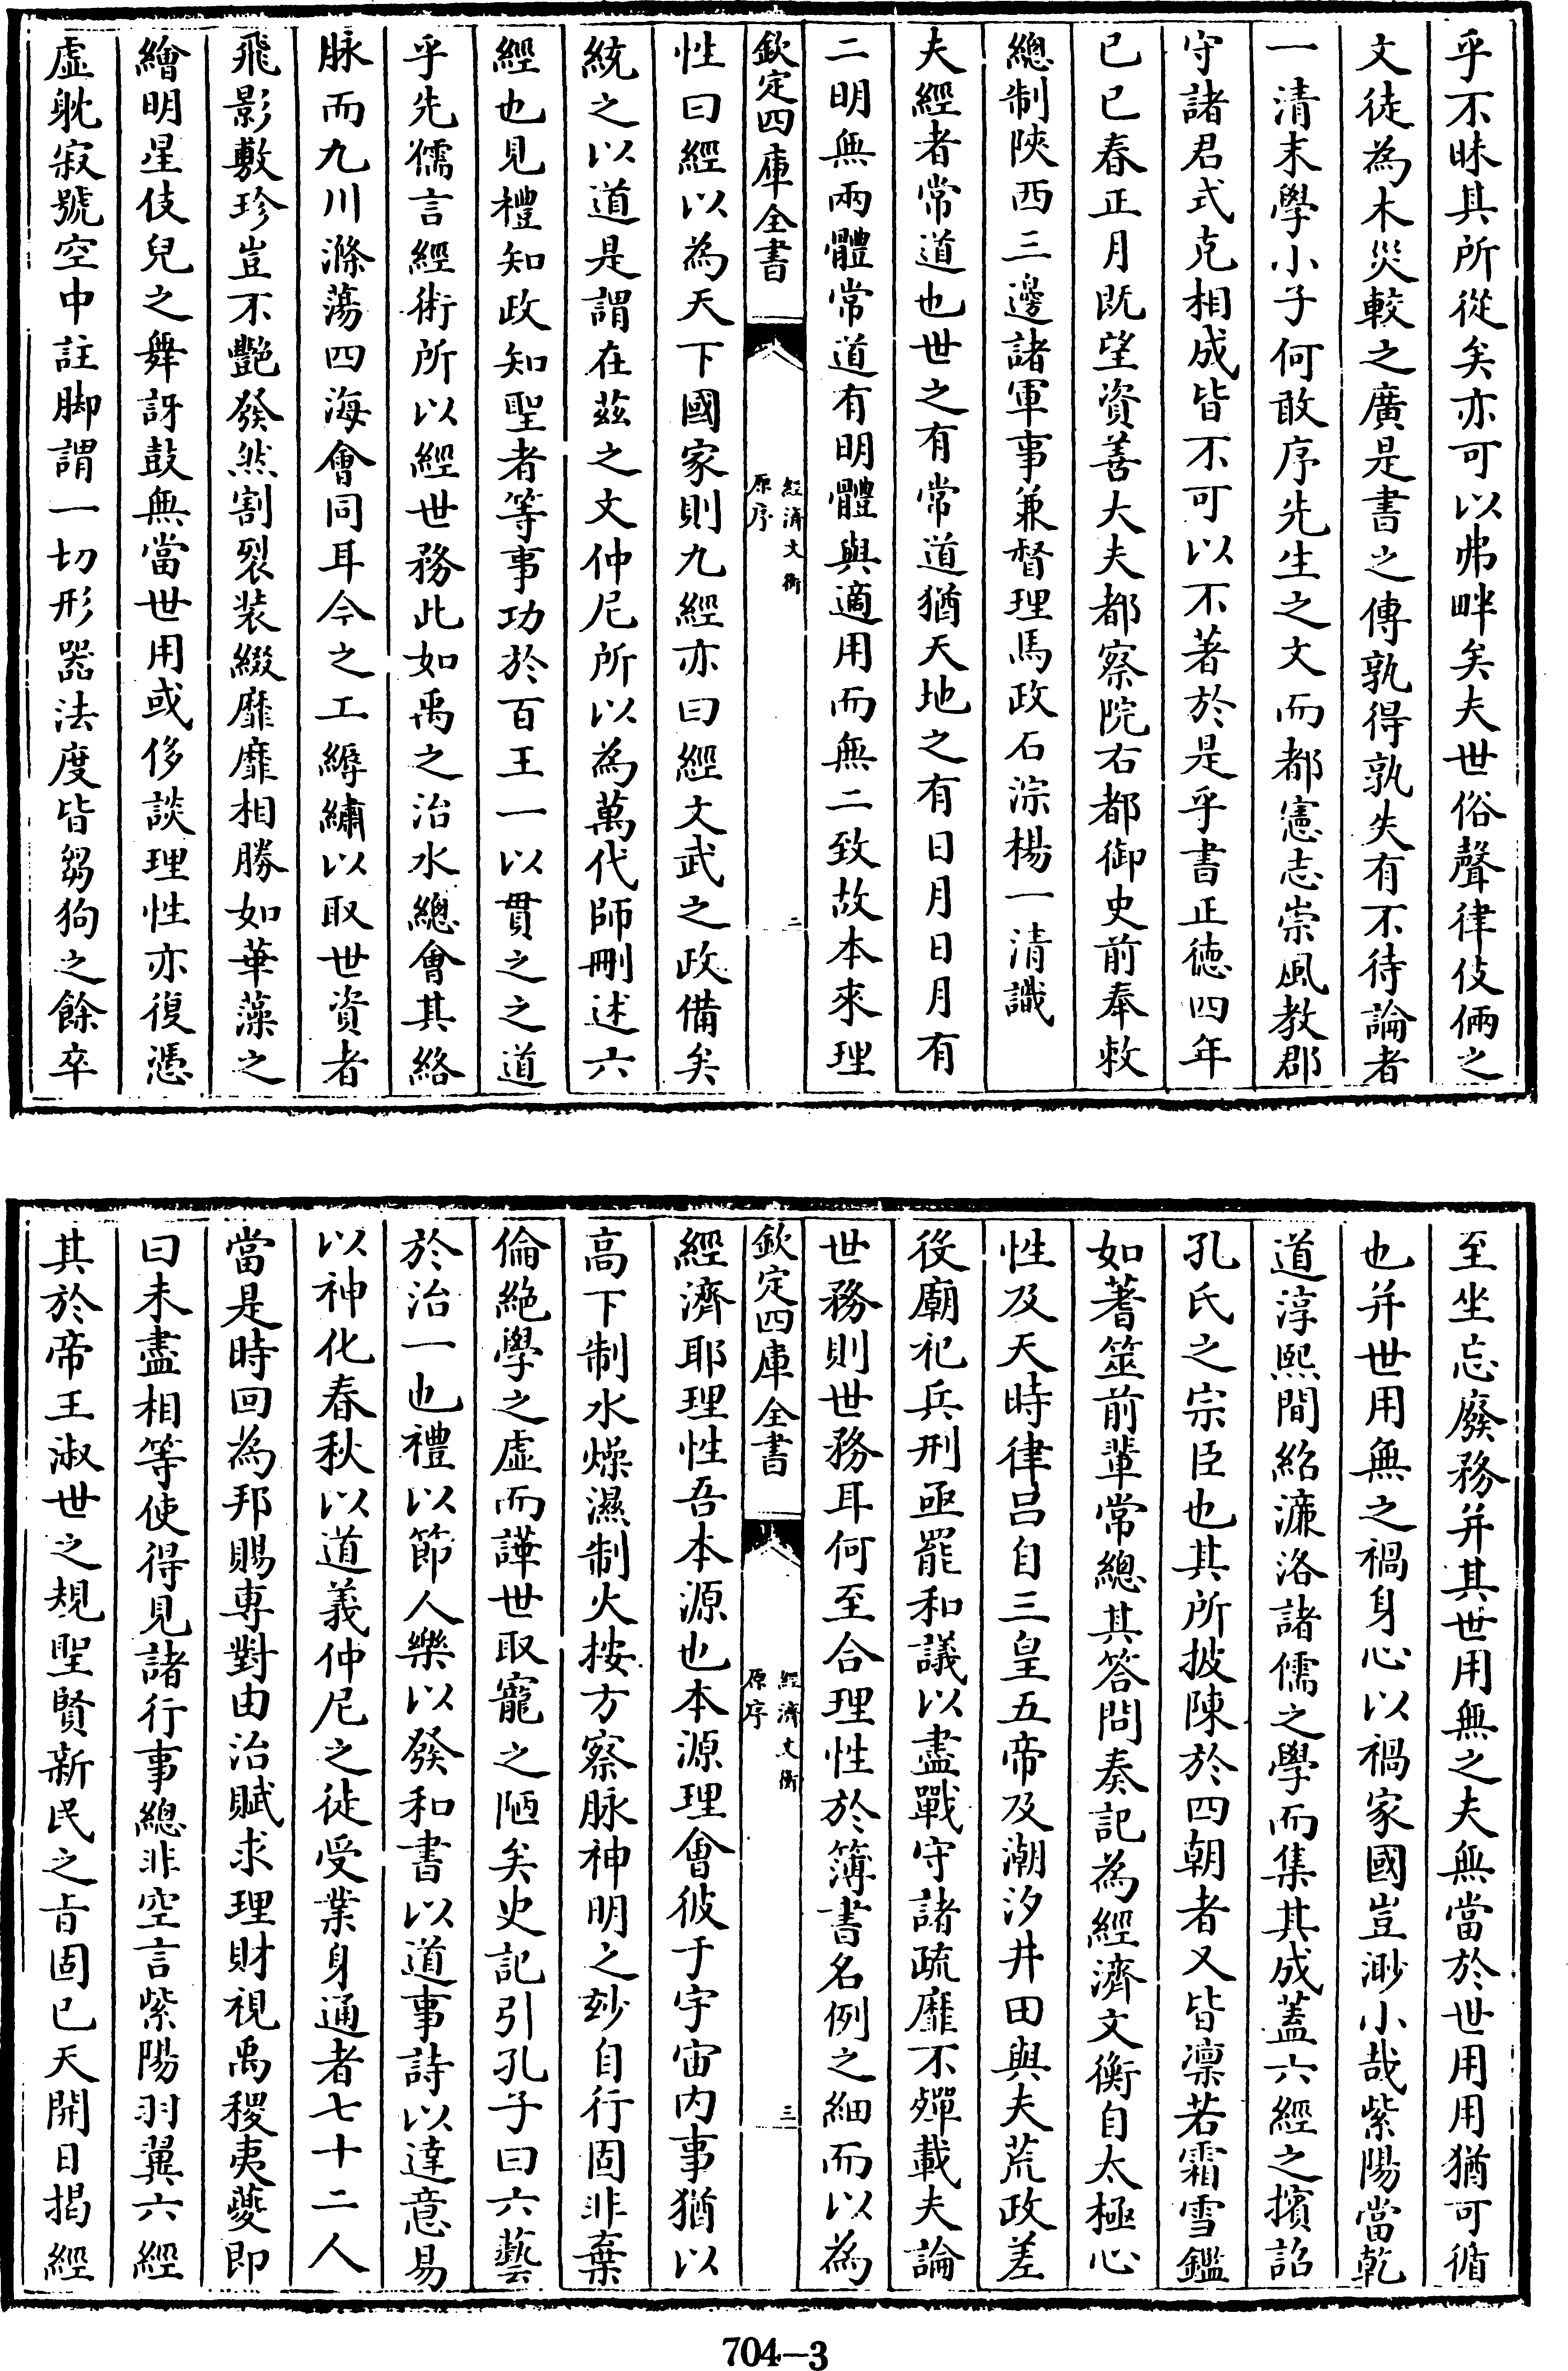 乎不昧其所從矣亦可以弗畔矣夫世俗聲律伎倆之
文徒為木災較之廣是書之傳孰得孰失有不待論者
一清末學小子何敢序先生之文而都憲志崇風教郡
守諸君式克相成皆不可以不著於是乎書正徳四年
已巳春正月既望資善大夫都察院右都御史前奉敕
總制陜西三邊諸軍事兼督理馬政石淙楊一清識
夫經者常道也世之有常道猶天地之有日月日月有
二明無兩體常道有明體與適用而無二致故本來理
欽定四庫全書
經濟文衡
原序
二
性曰經以為天下國家則九經亦曰經文武之政備矣
統之以道是謂在兹之文仲尼所以為萬代師刪述六
經也見禮知政知聖者等事功於百王一以貫之之道
乎先儒言經術所以經世務此如禹之治水總會其絡
脉而九川滌蕩四海會同耳今之工縟繡以取世資者
飛影敷珍豈不艷發然割裂装綴靡靡相勝如華藻之
繪明星伎兒之舞訝鼓無當世用或侈談理性亦復憑
虛躭寂號空中註脚謂一切形器法度皆芻狗之餘卒
至坐忘廢務并其世用無之夫無當於世用用猶可循
也并世用無之禍身心以禍家國豈渺小哉紫陽當乾
道淳熙間紹濂洛諸儒之學而集其成蓋六經之擯詔
孔氏之宗臣也其所披陳於四朝者又皆凛若霜雪鑑
如蓍筮前輩常總其答問奏記為經濟文衡自太極心
性及天時律吕自三皇五帝及潮汐井田與夫荒政差
役廟祀兵刑亟罷和議以盡戰守諸疏靡不殫載夫論
世務則世務耳何至合理性於簿書名例之細而以為
欽定四庫全書
經濟文衡
原序
三
經濟耶理性吾本源也本源理會彼于宇宙内事猶以
高下制水燥濕制火按方察脉神明之玅自行固非棄
倫絶學之虛而譁世取寵之陋矣史記引孔子曰六藝
於治一也禮以節人樂以發和書以道事詩以達意易
以神化春秋以道義仲尼之徒受業身通者七十二人
當是時回為邦賜專對由治賦求理財視禹稷夷夔即
曰未盡相等使得見諸行事總非空言紫陽羽翼六經
其於帝王淑世之規聖賢新民之㫖固已天開日揭經
704-3